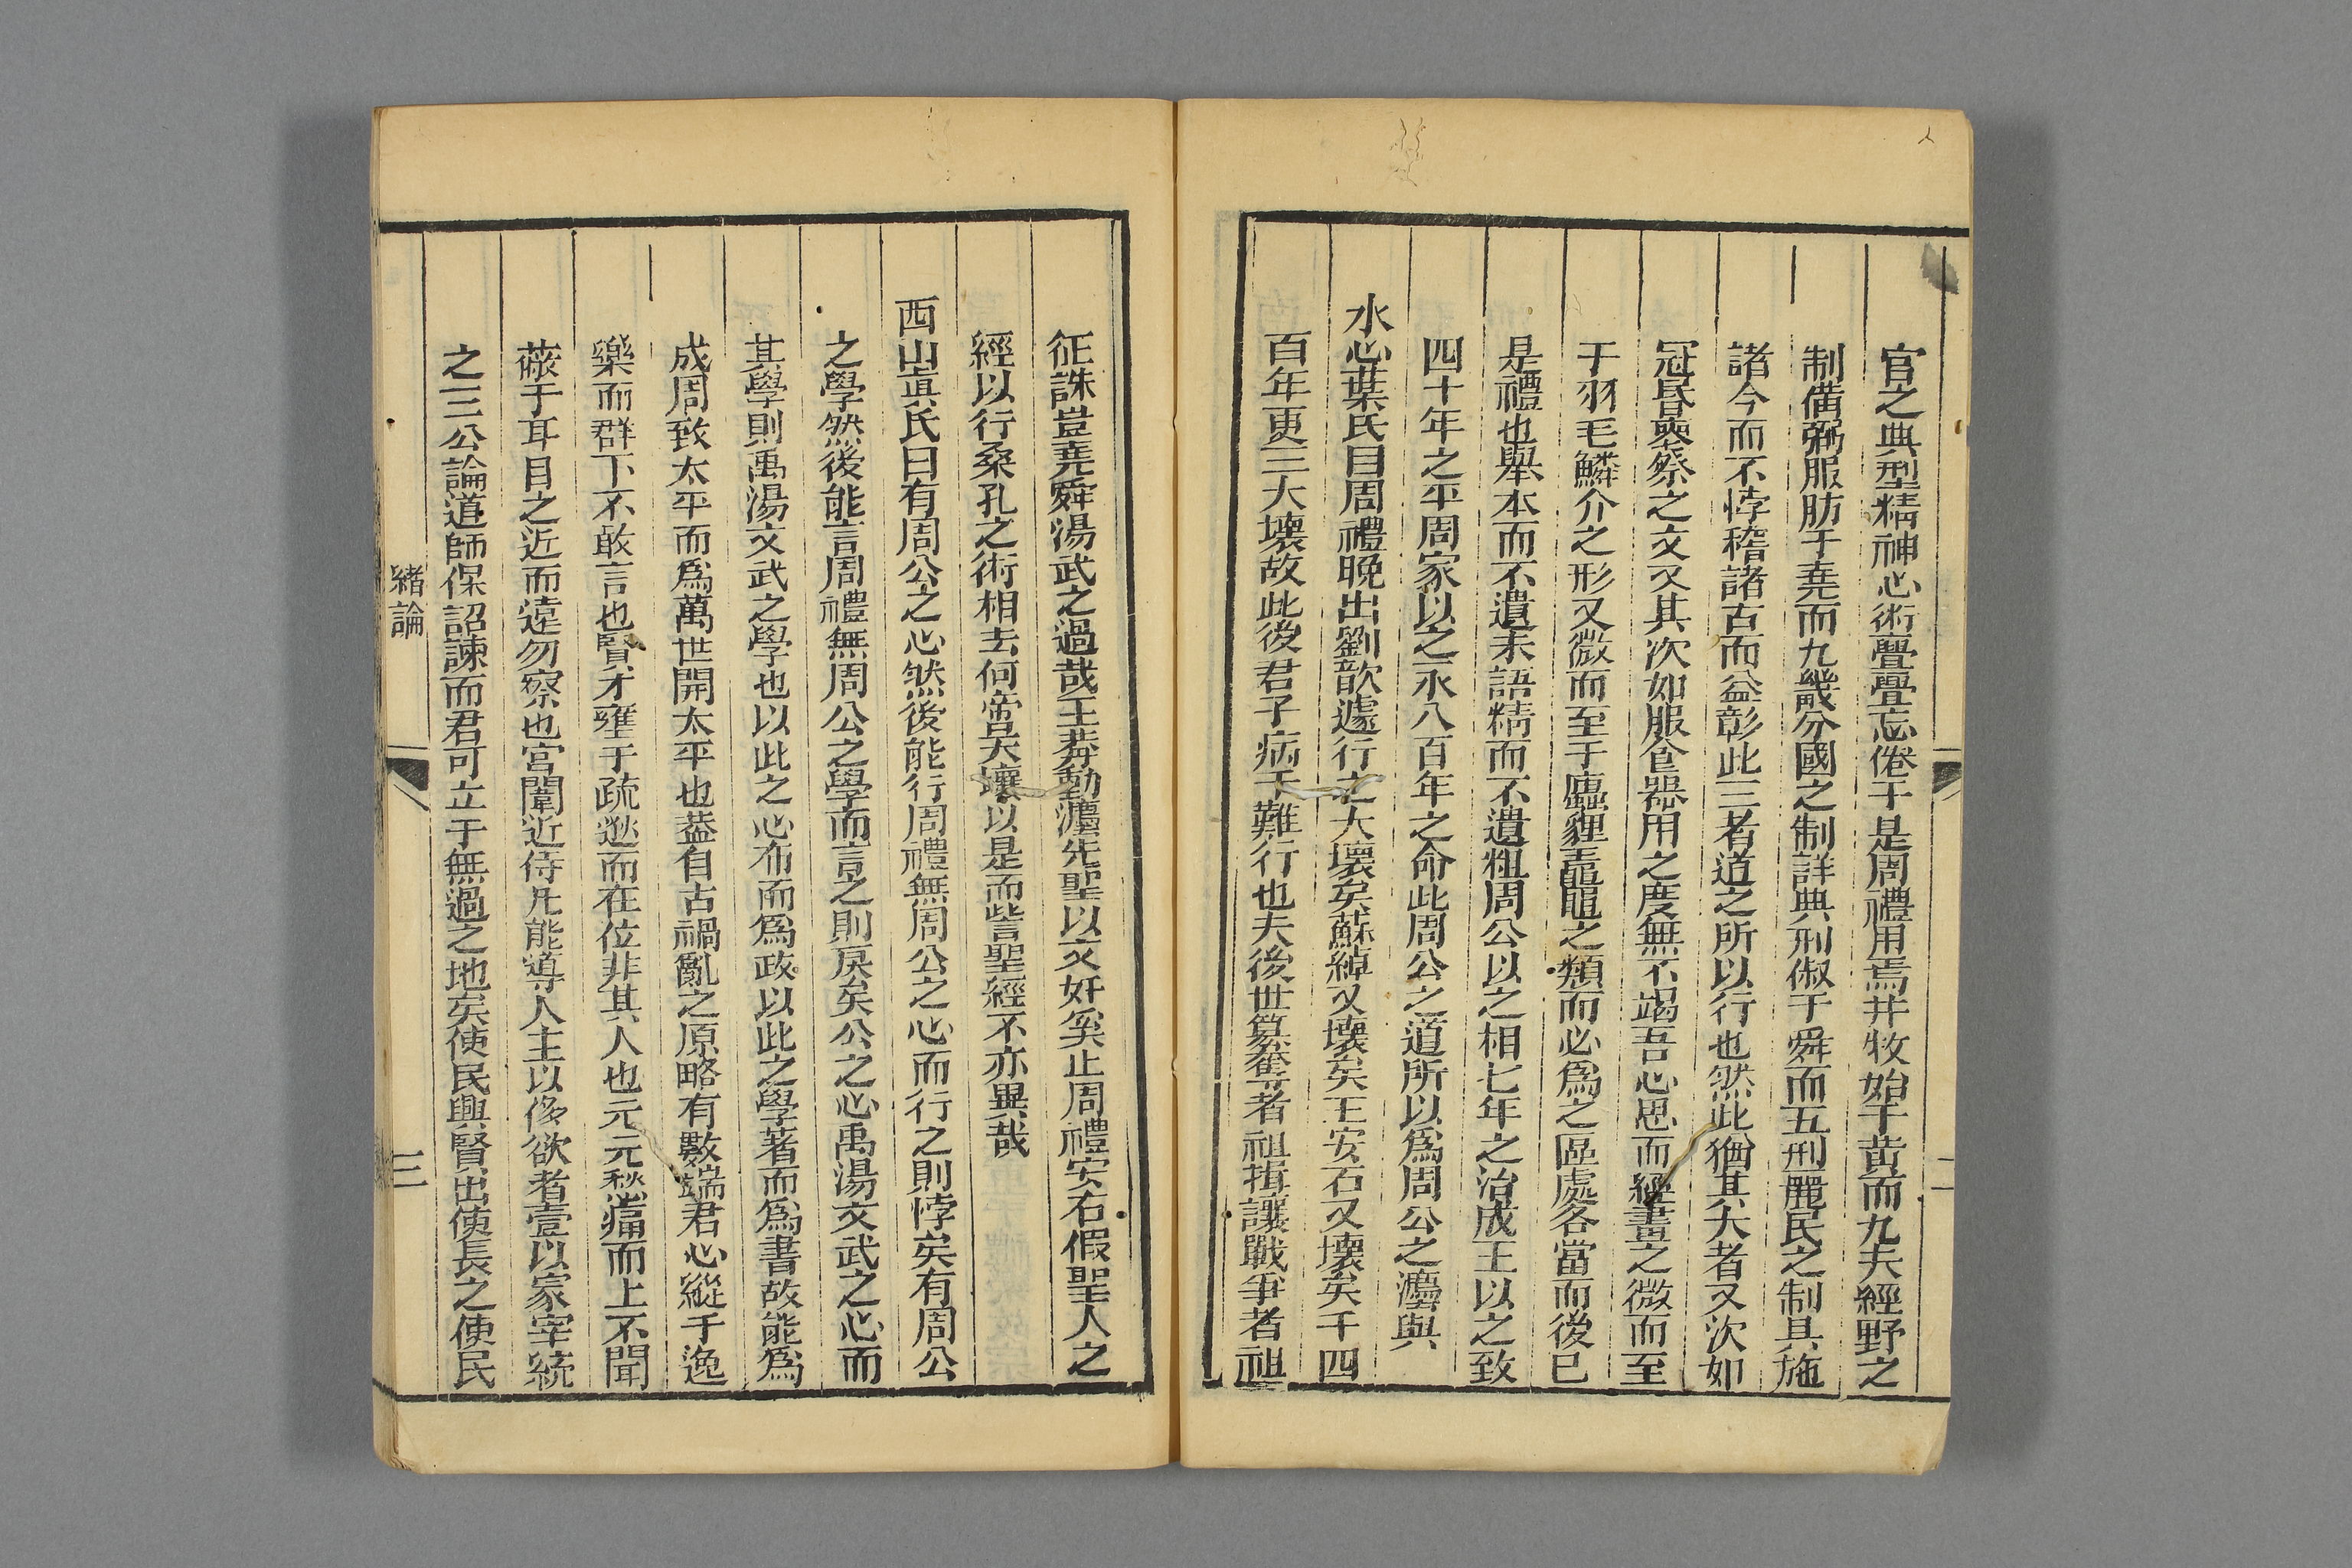 官之典型精神心術亹亹忘倦于是周禮用焉井牧始于黃而九夫經野之
制備弼服肪于堯而九畿分國之制詳典刑俶于舜而五刑麗民之制具施
諸今而不悖稽諸古而益彰此三者道之所以行也然此猶其大者又次如
冠昏喪祭之文又其次如服食器用之度無不竭吾心思而經畫之微而至
于羽毛鱗介之形又微而至于蠯貍鼃黽之類而必爲之區處各當而後已
是禮也舉本而不遺末語精而不遺粗周公以之相七年之治成王以之致
四十年之平周家以之永八百年之命此周公之道所以爲周公之灋與
水心葉氏曰周禮晚出劉歆遽行之大壞矣蘇綽又壞矣王安石又壞矣千四
百年更三大壞故此後君子病于難行也夫後世篡奪者祖揖讓戰爭者祖
征誅豈堯舜湯武之過哉王莽動灋先聖以文奸奚止周禮安石假聖人之
經以行桑孔之術相去何啻天壤以是而訾聖經不亦異哉
西山眞氏曰有周公之心然後能行周禮無周公之心而行之則悖矣有周公
之學然後能言周禮無周公之學而言之則戾矣公之心禹湯文武之心而
其學則禹湯文武之學也以此之心布而爲政以此之學著而爲書故能爲
成周致太平而爲萬世開太平也葢自古禍亂之原略有數端君心縱于逸
樂而群下不敢言也賢才壅于疏逖而在位非其人也元元愁痛而上不聞
蔽于耳目之近而遠勿察也宮闈近侍凡能導人主以侈欲者壹以冢宰統
之三公論道師保詔諫而君可立于無過之地矣使民興賢出使長之使民
緒論
三